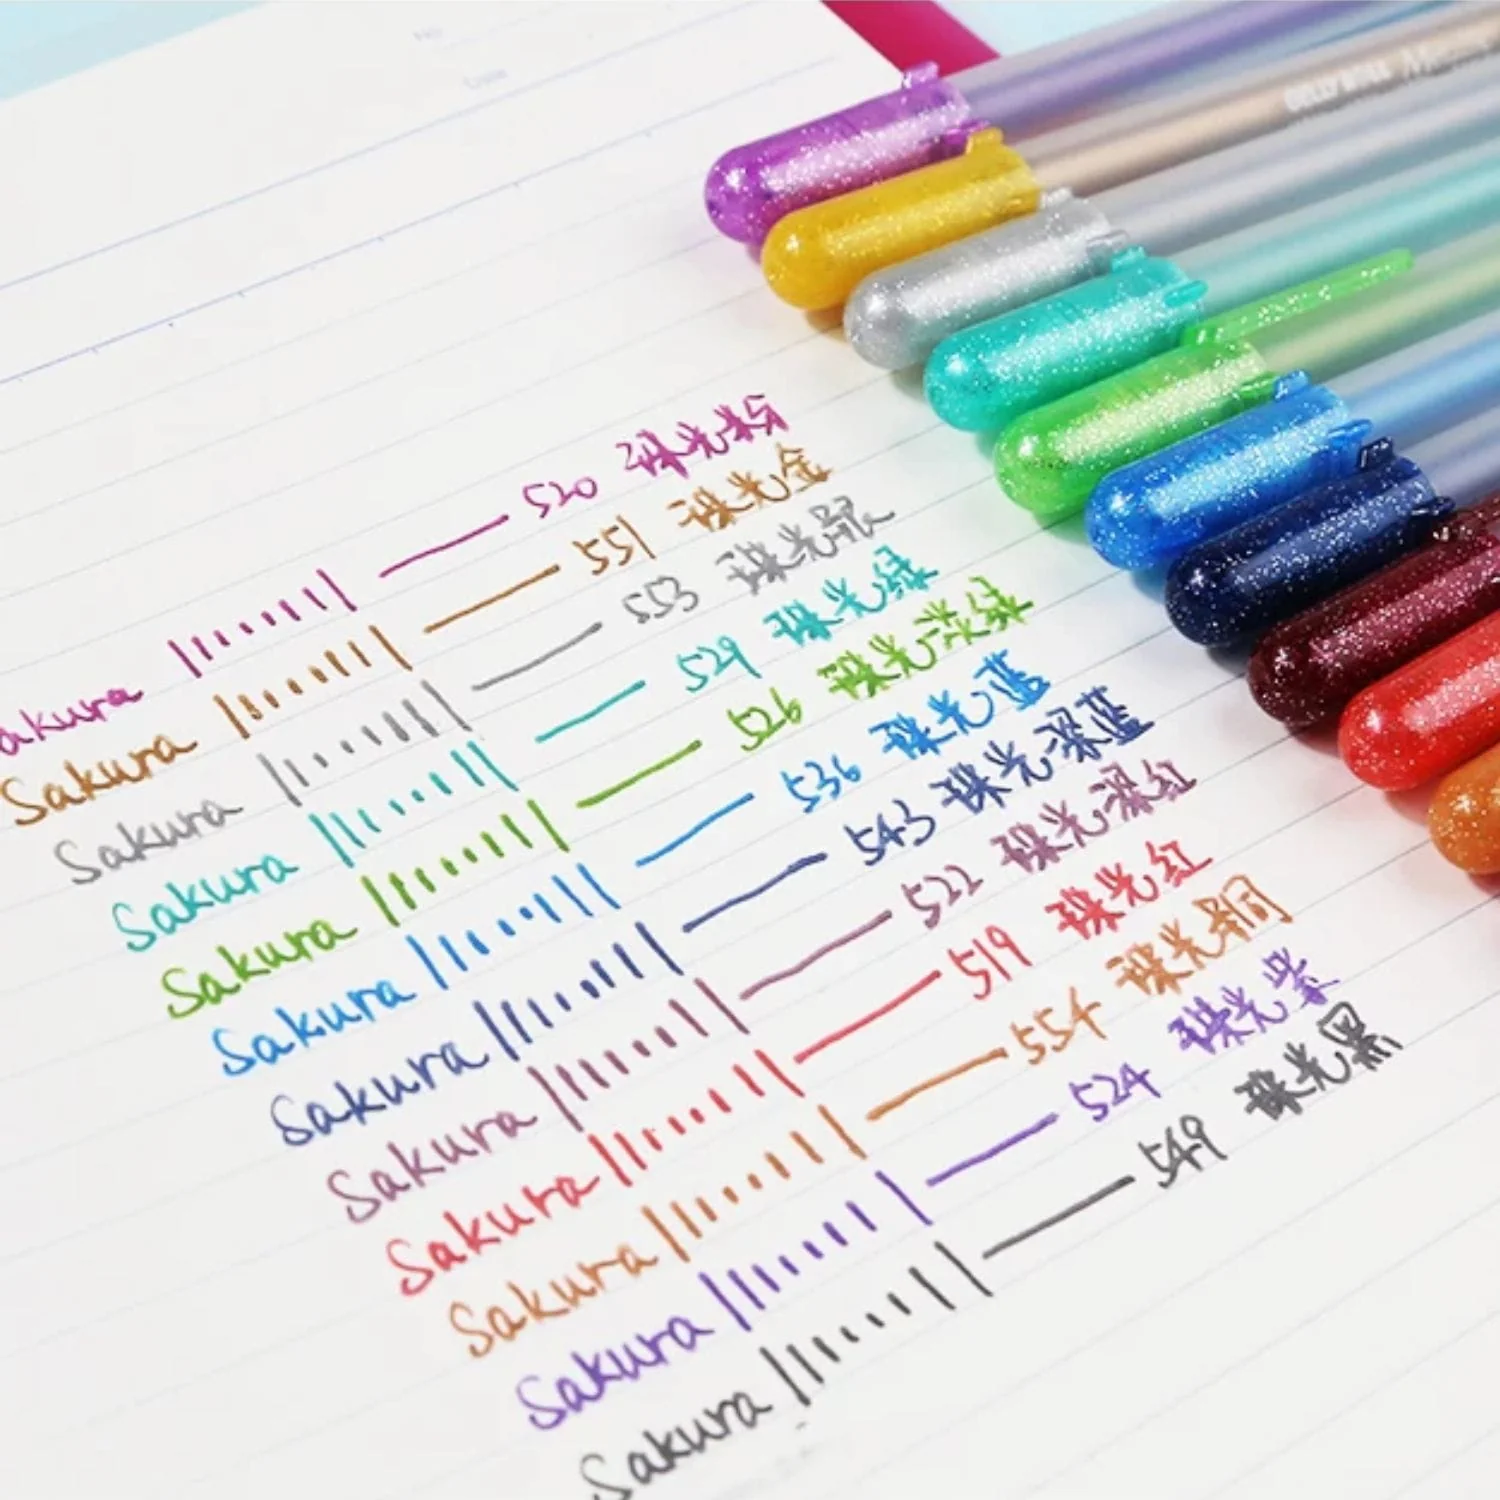 No
Date
GELLY ROLL
akura 520 珠光粉
Sakura 551 珠光金
Sakura 553 珠光银
Sakura 529 珠光绿
Sakura 526
Sakura 536 珠光蓝
Sakura 543 珠光深蓝
Sakura 522 珠光深红
Sakura 519 珠光红
Sakura 554 珠光铜
Sakura 524 珠光紫
Sakura 549 珠光黑